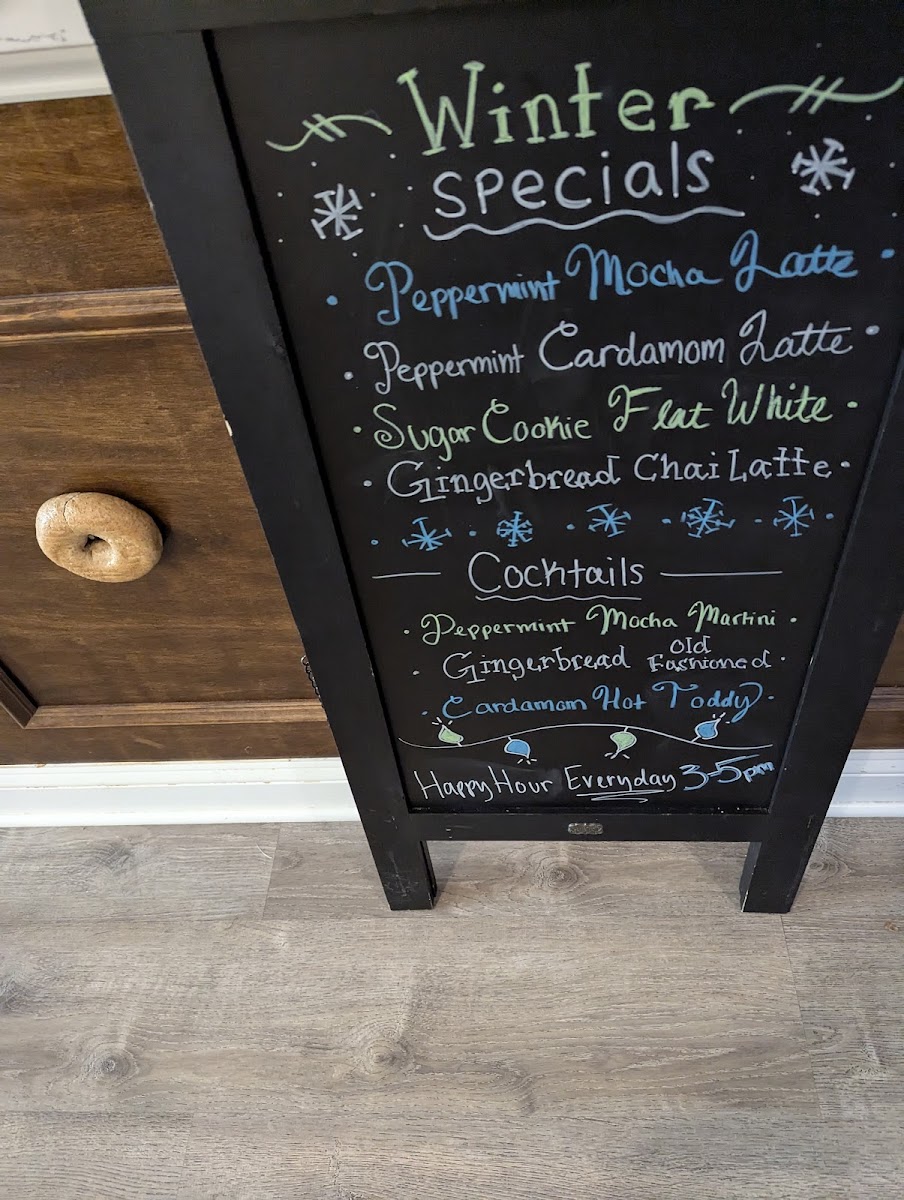 Winter
Specials
Peppermint Mocha Latte
Peppermint Cardamom Latte
Sugar Cookie Flat White
Gingerbread Chai Latte
Cocktails
Peppermint Mocha Martini
Gingerbread Old Fashioned
Cardamom Hot Toddy
Happy Hour Everyday 3-5pm